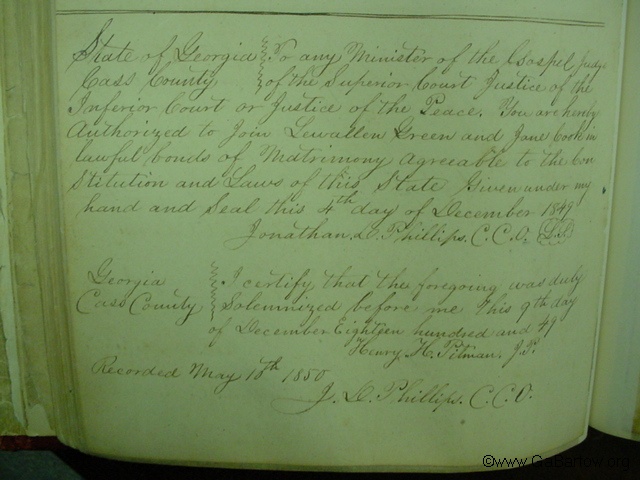 State of Georgia To any Minister of the Gospel Judge
Cass County of the Superior Court Justice of the
Inferior Court or Justice of the Peace. You are hereby
Authorized to Join Lewallen Green and Jane Cook in
lawful bonds of Matrimony agreeable to the Con
stitution and Laws of this State Given under my
hand and Seal this 4th day of December 1849
Jonathan. L. Phillips. C. C. O. L.S
Georgia I certify that the foregoing was duly
Cass County Solemnized before me this 9th day
of December Eighteen hundred and 49
Henry. H. Pitman. J.P.
Recorded May 10th 1850
J. L. Phillips. C. C. O.
©www.GaBartow.org